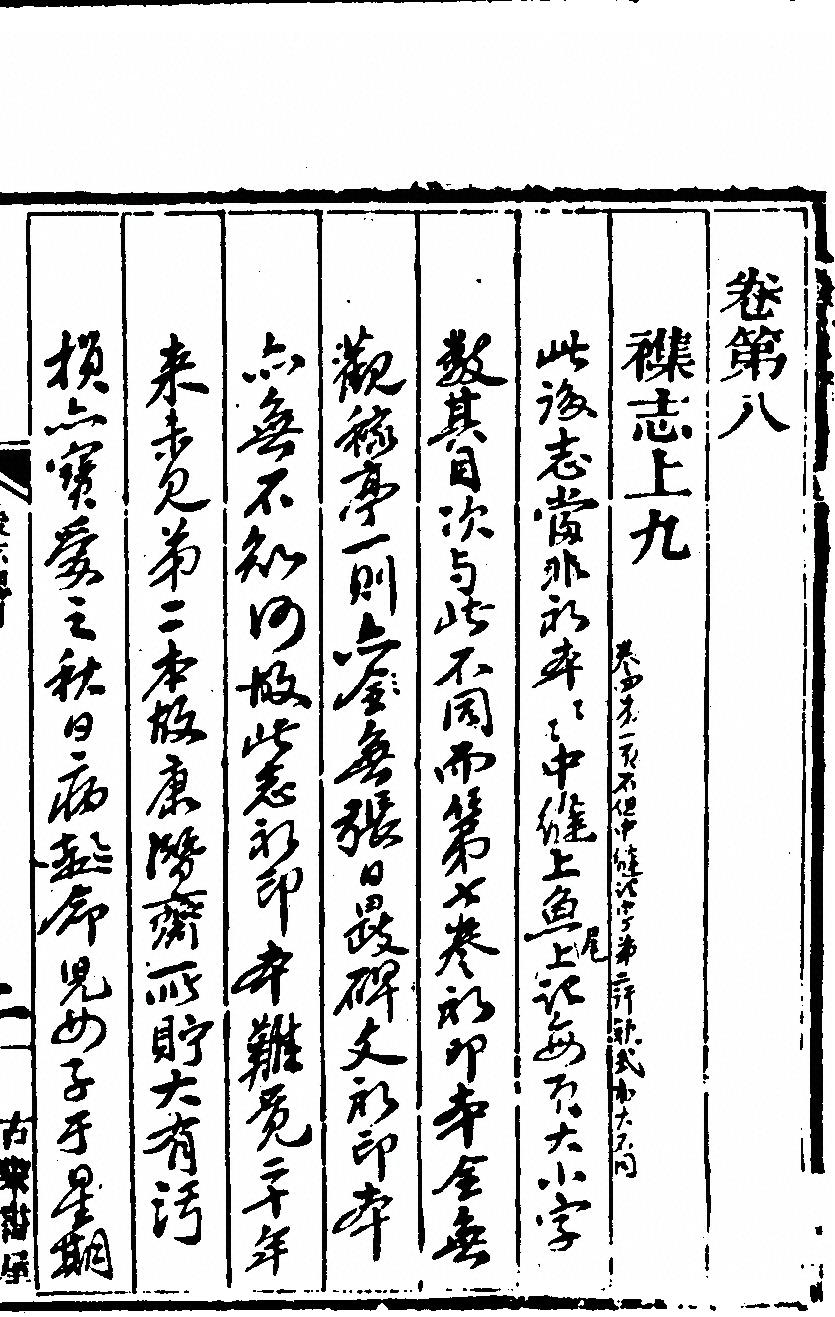 卷第八
襍志上九
卷四末一頁不但中縫記字第二行款式亦大不同
此後志當非初本〻〻中縫上魚尾上記每頁大小字
數其目次与此不同而第七卷初印本全無
觀稼亭一則亦全無張日晸碑文初印本
亦無不知何故此志初印本難覓二十年
来未见第二本故康齋所貯大有污
損亦寳愛之秋日病起命児女子于星期